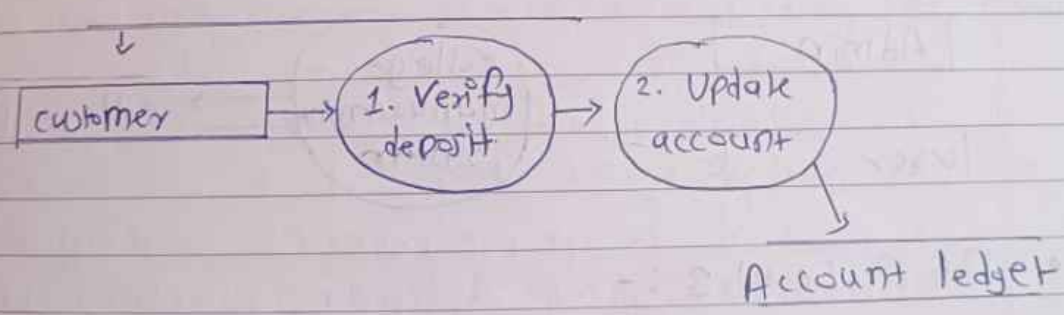 customer
1. Verify
deposit
2. Update
account
Account ledger